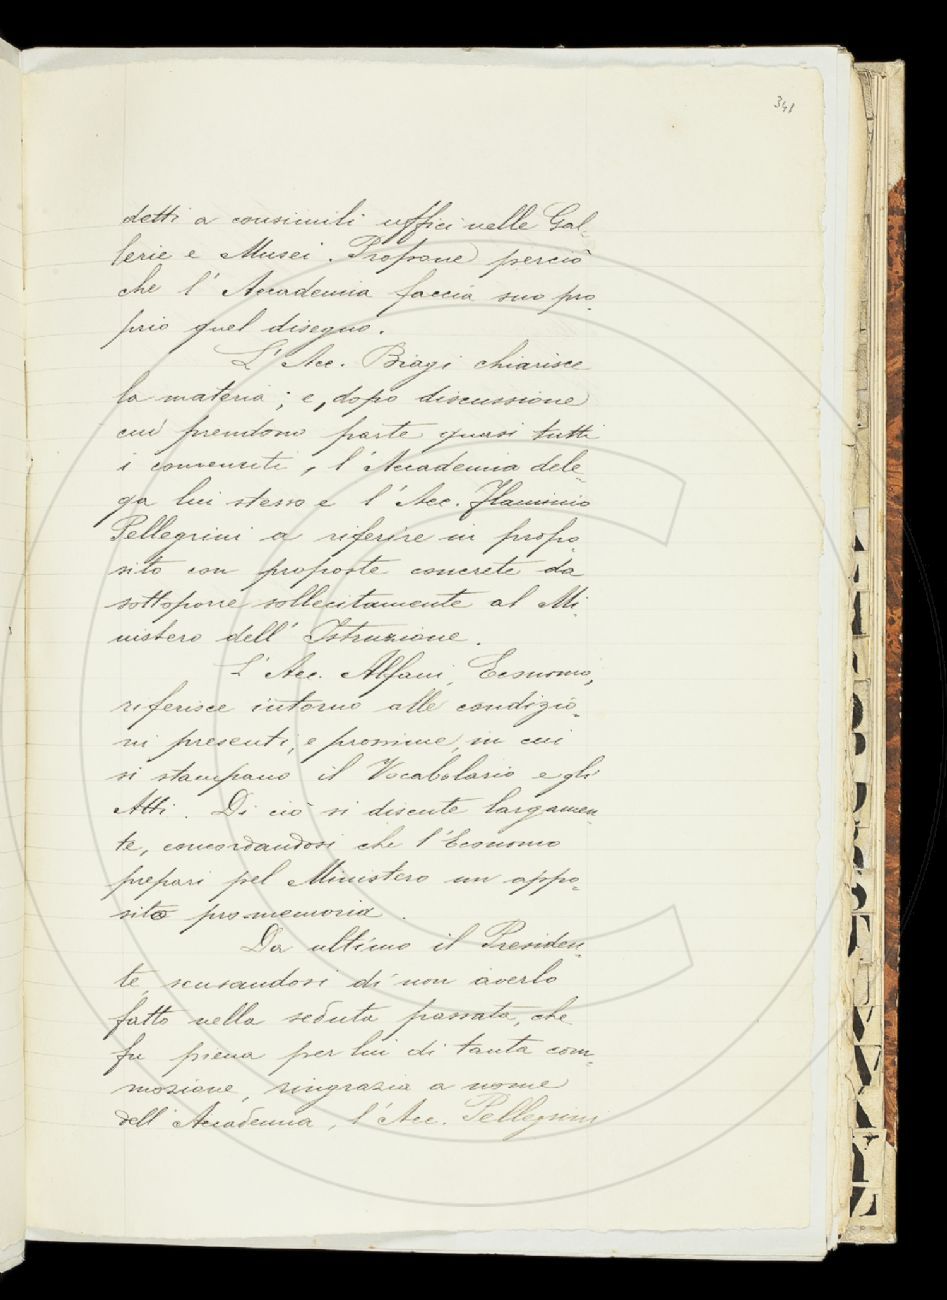 341
detti a consimili uffici nelle Gal-
lerie e Musei. Propone perciò
che l'Accademia faccia suo pro-
prio quel disegno.
L'Acc. Biagi chiarisce
la materia; e, dopo discussione
cui prendono parte quasi tutti
i convenuti, l'Accademia dele-
ga lui stesso e l'Acc. Flaminio
Pellegrini a riferire in propo-
sito con proposte concrete da
sottoporre sollecitamente al Mi-
nistero dell'Istruzione.
L'Acc. Alfani, Economo,
riferisce intorno alle condizio-
ni presenti, e prossime, in cui
si stampano il Vocabolario e gli
Atti. Di ciò si discute largamen-
te, concordandosi che l'Economo
prepari pel Ministero un appo-
sito promemoria.
Da ultimo il Presiden-
te, scusandosi di non averlo
fatto nella seduta passata, che
fu piena per lui di tanta com-
mozione, ringrazia a nome
dell'Accademia, l'Acc. Pellegrini